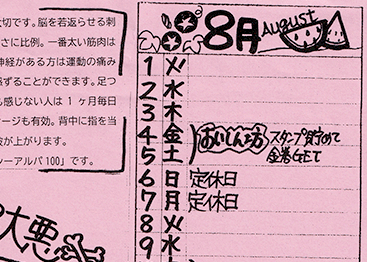 大切です。脳を若返らせる刺
さに比例。一番太い筋肉は
神経がある方は運動の痛み
ずることができます。足つ
も感じない人は 1 ヶ月毎日
ージも有効。背中に指を当
が上がります。
ツーアルパ 100」です。
大悪
8月 August
1 火
2 水
3 木
4 金 あいしん坊 スタンプ貯めて
5 土 金券GET
6 日 定休日
7 月 定休日
8 火
9 水